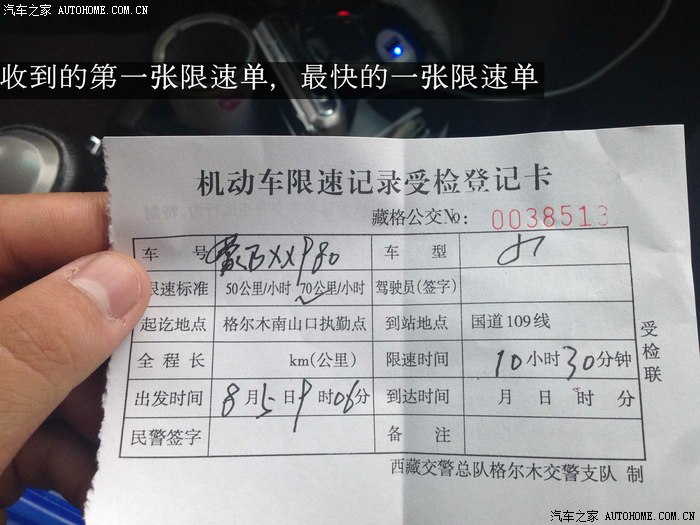 汽车之家 AUTOHOME.COM.CN
收到的第一张限速单，最快的一张限速单
机动车限速记录受检登记卡
藏格公交№： 0038513
车 号 蒙 XX P80 车 型
限速标准 50公里/小时 70公里/小时 驾驶员(签字)
起讫地点 格尔木南山口执勤点 到站地点 国道109线
全 程 长 km(公里) 限速时间 10小时30分钟
出发时间 8月5日9时06分 到达时间 月 日 时 分
民警签字 备 注
受检联
西藏交警总队格尔木交警支队 制
汽车之家 AUTOHOME.COM.CN